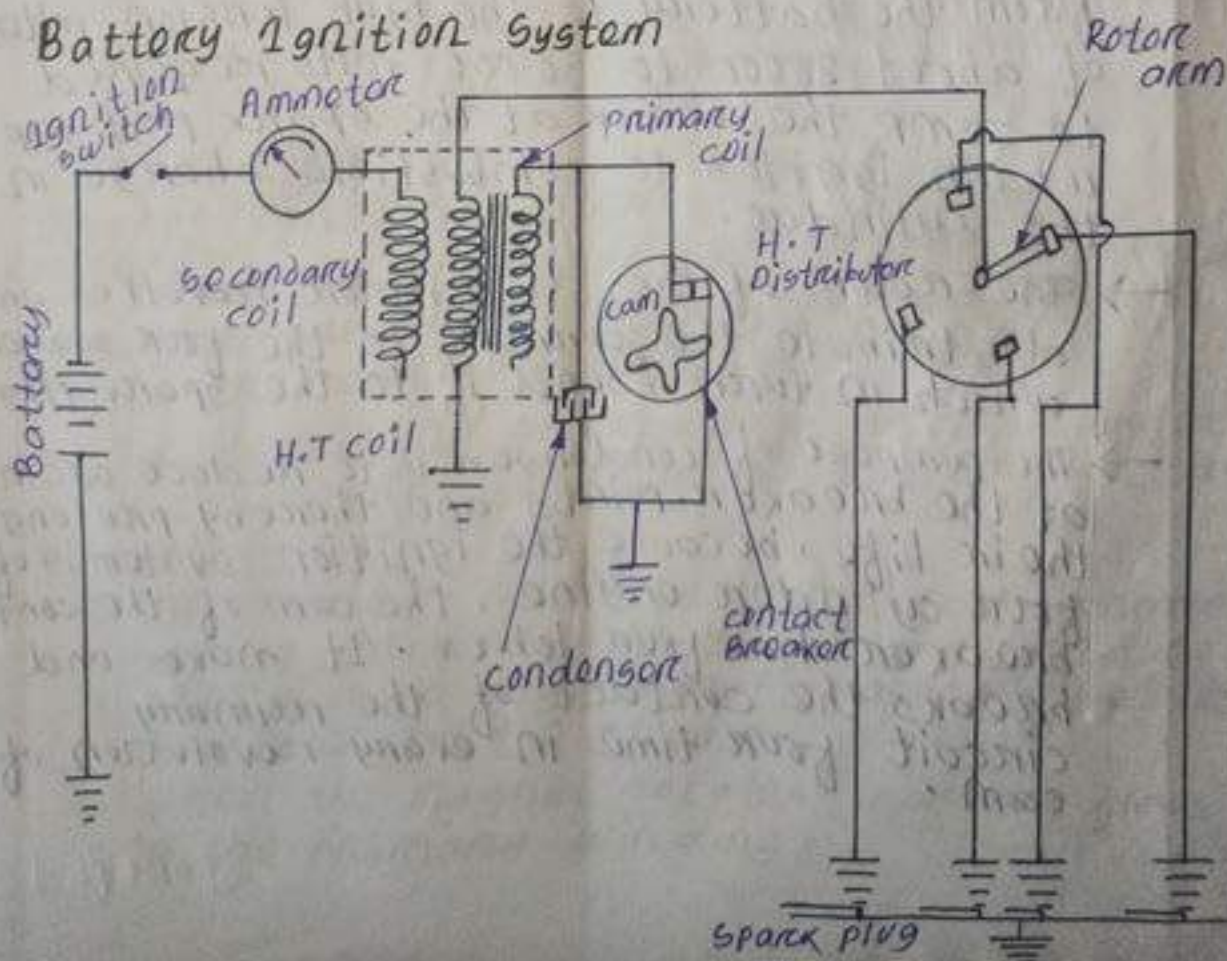 Battery Ignition System
Ignition
switch
Ammeter
primary
coil
Rotor
arm
secondary
coil
cam
H.T
Distributor
Battery
H.T coil
contact
Breaker
condensor
spark plug